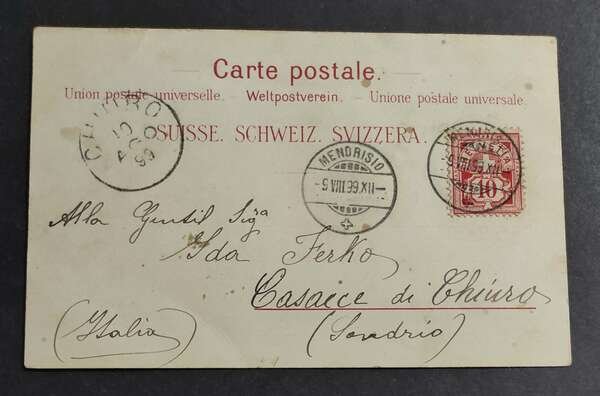 Carte postale.
Union postale universelle. - Weltpostverein. - Unione postale universale.
SUISSE. SCHWEIZ. SVIZZERA.
CHIURO
10
AGO
99
MENDRISIO
-9 VIII 99 XII-
MENDRISIO
-9 VIII 99 XII-
HELVETIA
10
Alla Gentil Sigª
Ida Ferko
Casacce di Chiuro
(Italia)
(Sondrio)